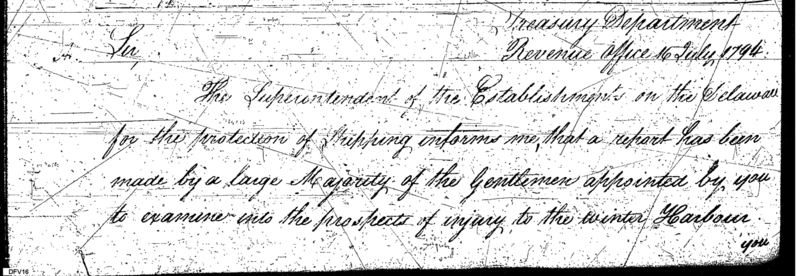 Treasury Department
Revenue Office 16 July, 1794.
Sir,
The Superintendent of the Establishments on the Delaware
for the protection of Shipping informs me, that a report has been
made by a large Majority of the Gentlemen appointed by you
to examine into the prospects of injury to the winter Harbour
you
DFV16